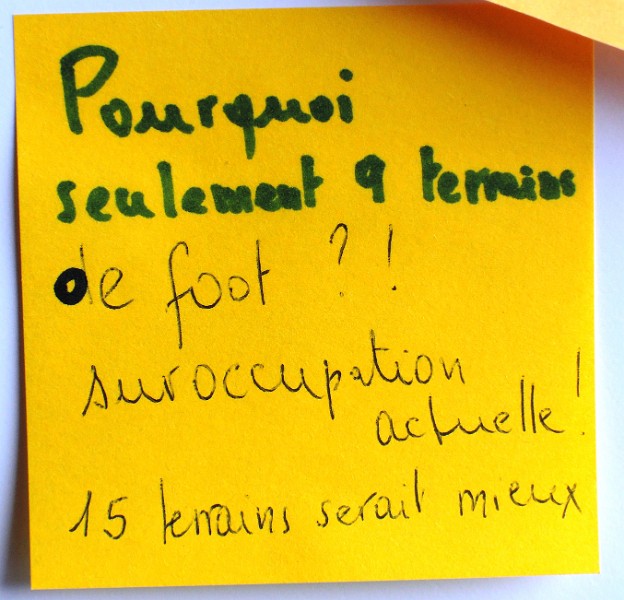 Pourquoi
seulement 9 terrains
de foot ?!
suroccupation
actuelle!
15 terrains serait mieux